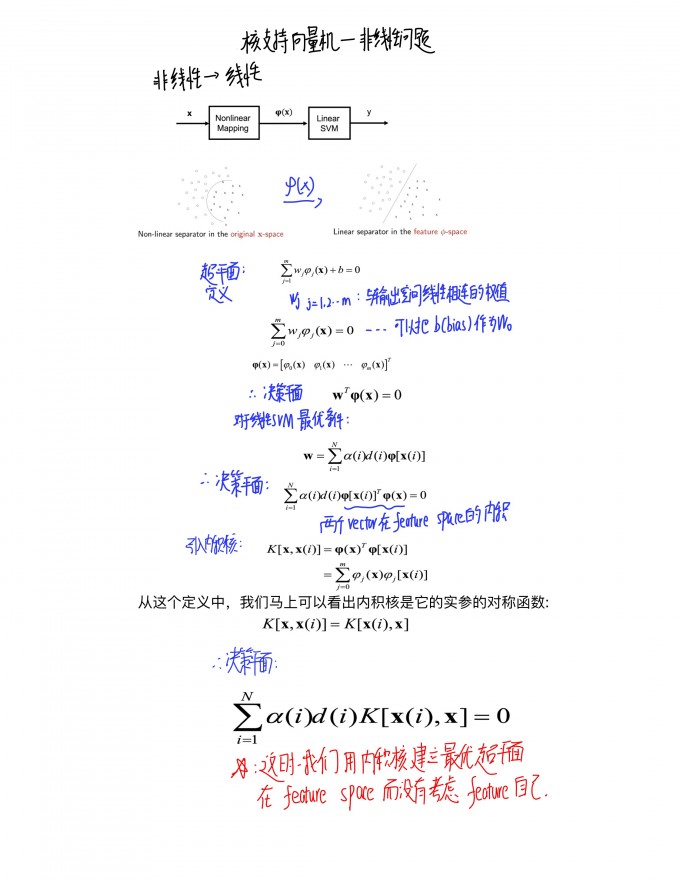 核支持向量机—非线性问题
非线性→线性
x Nonlinear Mapping φ(x) Linear SVM y
φ(x)
Non-linear separator in the original x-space
Linear separator in the feature ϕ-space
超平面:
定义
\sum_{j=1}^{m} w_j φ_j(x) + b = 0
wj j=1,2...m : 与输出空间线性相连的权值
\sum_{j=0}^{m} w_j φ_j(x) = 0 --- 可以把 b(bias) 作为 W₀
φ(x) = [φ₀(x) φ₁(x) ⋯ φ_m(x)]^T
∴ 决策平面 w^T φ(x) = 0
对于线性SVM 最优条件:
w = \sum_{i=1}^{N} α(i)d(i)φ[x(i)]
∴ 决策平面: \sum_{i=1}^{N} α(i)d(i)φ[x(i)]^T φ(x) = 0
两个 vector 在 feature space 的内积
引入内积核: K[x, x(i)] = φ(x)^T φ[x(i)]
= \sum_{j=0}^{m} φ_j(x)φ_j[x(i)]
从这个定义中，我们马上可以看出内积核是它的实参的对称函数:
K[x, x(i)] = K[x(i), x]
∴ 决策平面:
\sum_{i=1}^{N} α(i)d(i)K[x(i), x] = 0
☆:这明 我们用内积核建立最优超平面
在 feature space 而没有考虑 feature 自己.